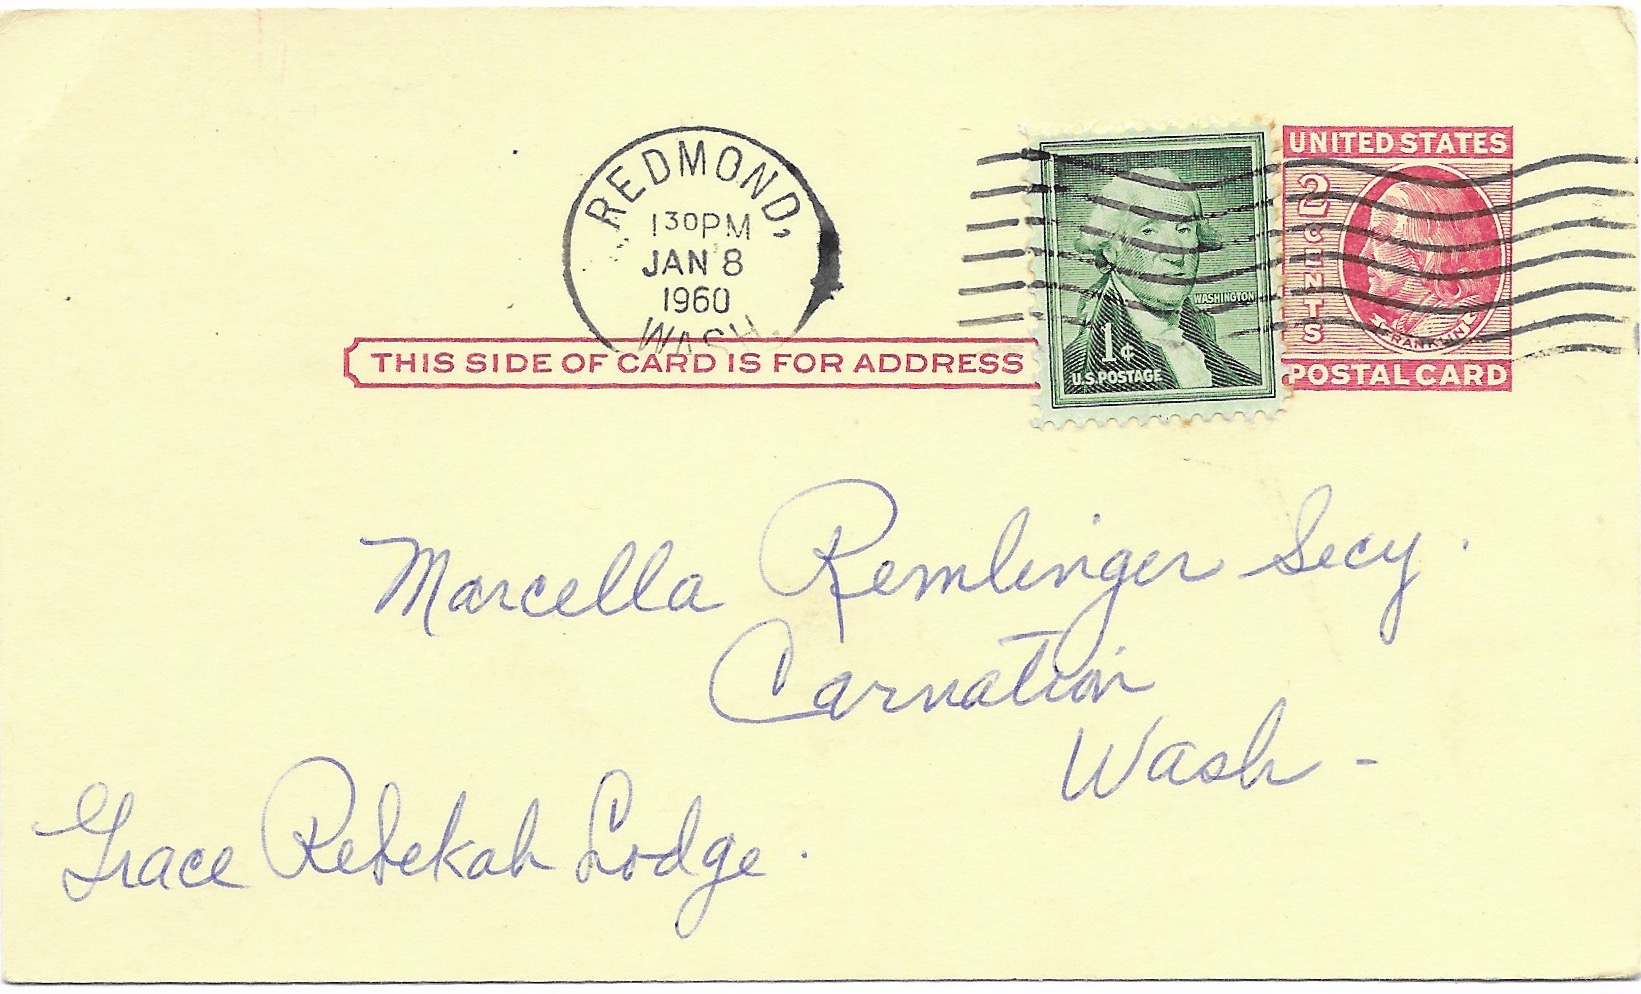 REDMOND,
1 30 PM
JAN 8
1960
WASH.
UNITED STATES
2 CENTS
FRANKLIN
POSTAL CARD
WASHINGTON
1¢
U.S. POSTAGE
THIS SIDE OF CARD IS FOR ADDRESS
Marcella Remlinger Secy.
Carnation
Wash -
Grace Rebekah Lodge.